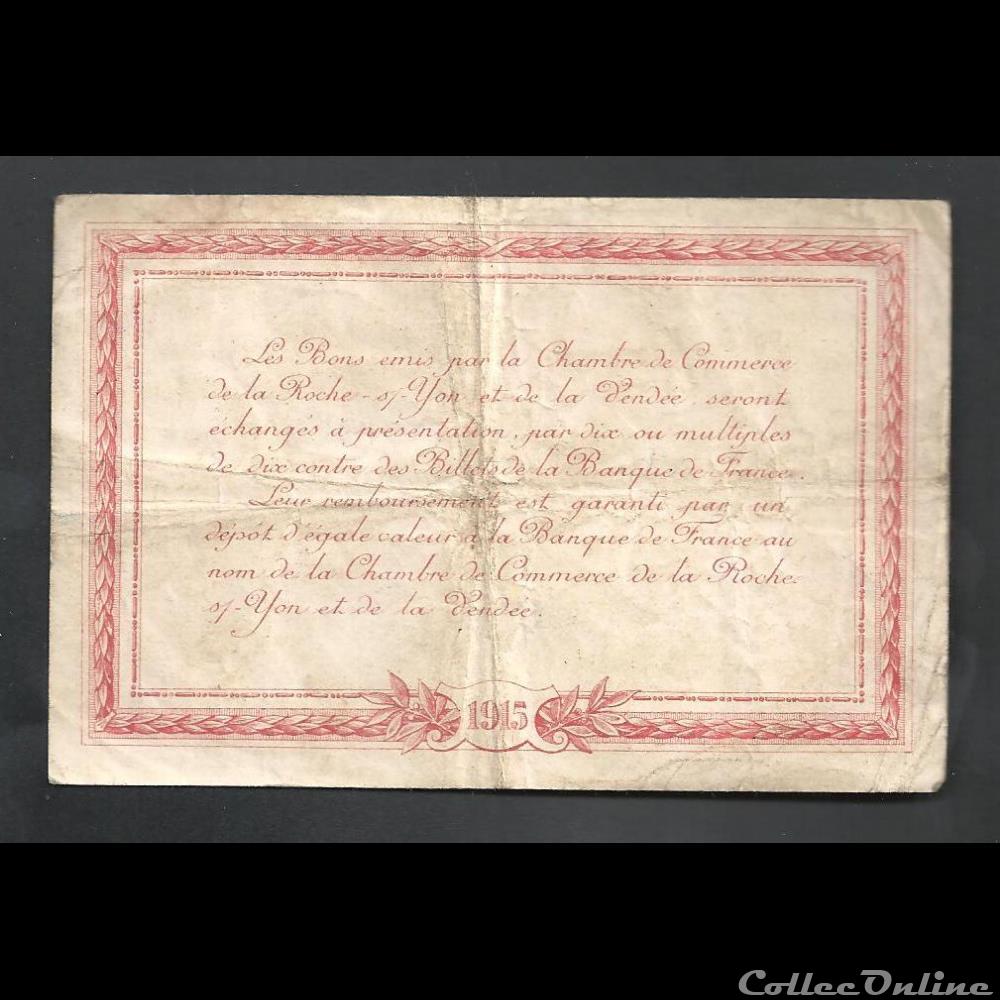 Les Bons emis par la Chambre de Commerce
de la Roche-s/-Yon et de la Vendée, seront
échangés à présentation, par dix ou multiples
de dix contre des Billets de la Banque de France.
Leur remboursement est garanti par un
dépôt d'égale valeur à la Banque de France au
nom de la Chambre de Commerce de la Roche-
s/-Yon et de la Vendée.
1915
CollecOnline